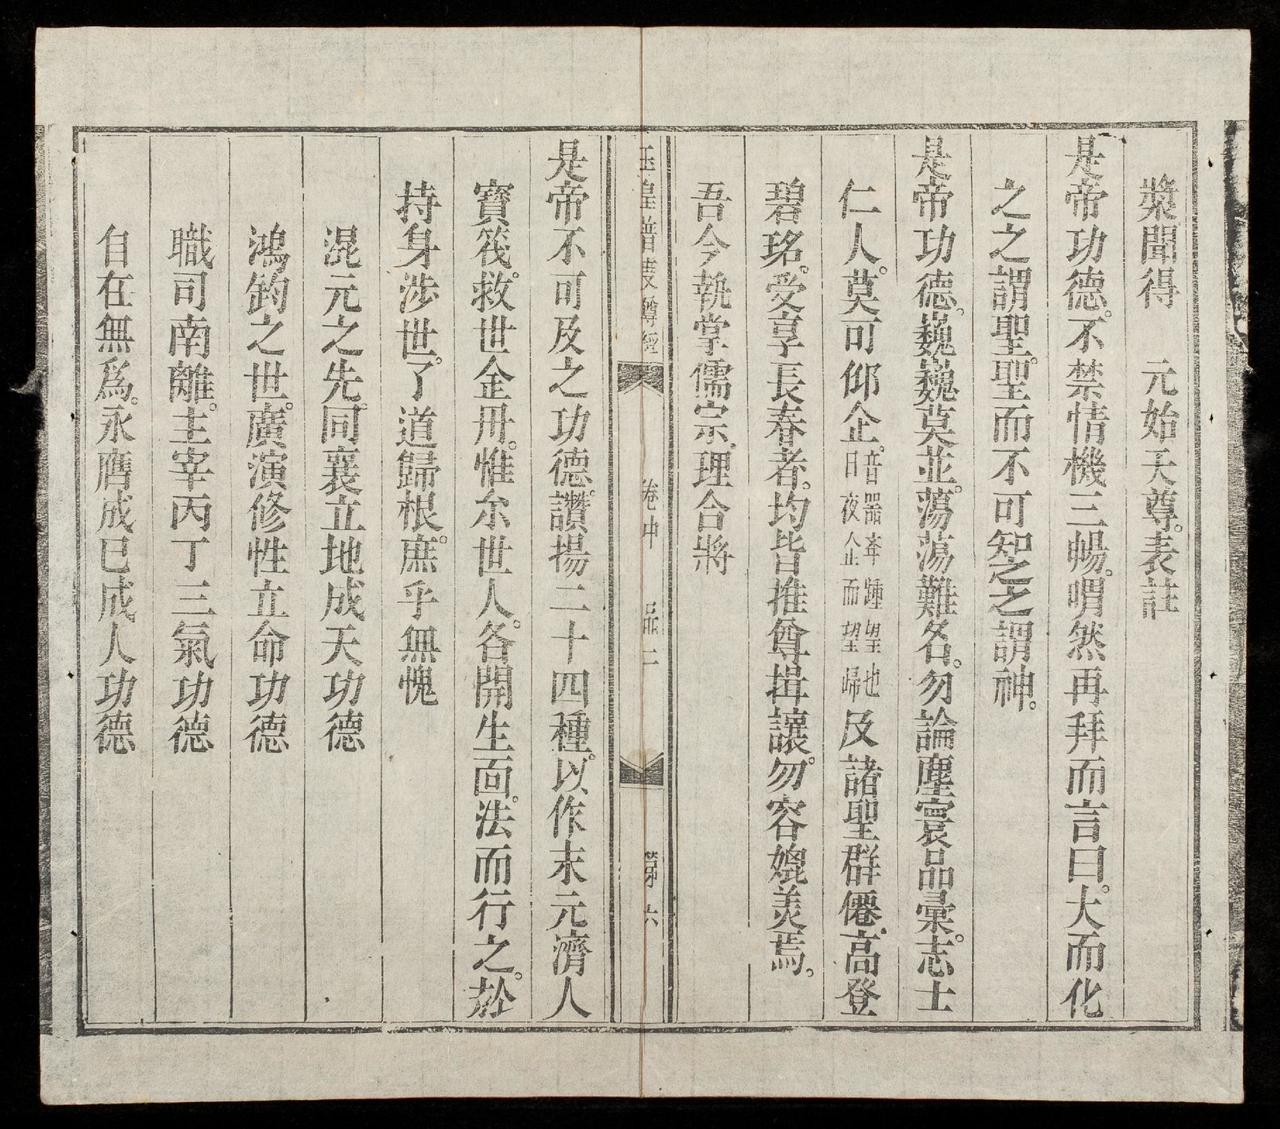 漿聞得　元始天尊。表註
是帝功德。不禁情機三暢。喟然再拜而言曰。大而化
之之謂聖。聖而不可知之之謂神。
是帝功德。巍巍莫並。蕩蕩難名。勿論塵寰品彙。志士
仁人。莫可仰企。音器夅踵望也日夜企而望歸及諸聖群僊。高登
碧珞。受享長春者。均皆推尊揖讓。勿容媲美焉。
吾今執掌儒宗。理合將
玉皇普度尊經　卷中　品二　第六
是帝不可及之功德。讚揚二十四種。以作末元濟人
寶筏。救世金冊。惟尒世人。各開生面。法而行之。於
持身涉世。了道歸根。庶乎無愧
混元之先。同襄立地成天功德
鴻鈞之世。廣演修性立命功德
職司南離。主宰丙丁三氣功德
自在無爲。永膺成巳成人功德